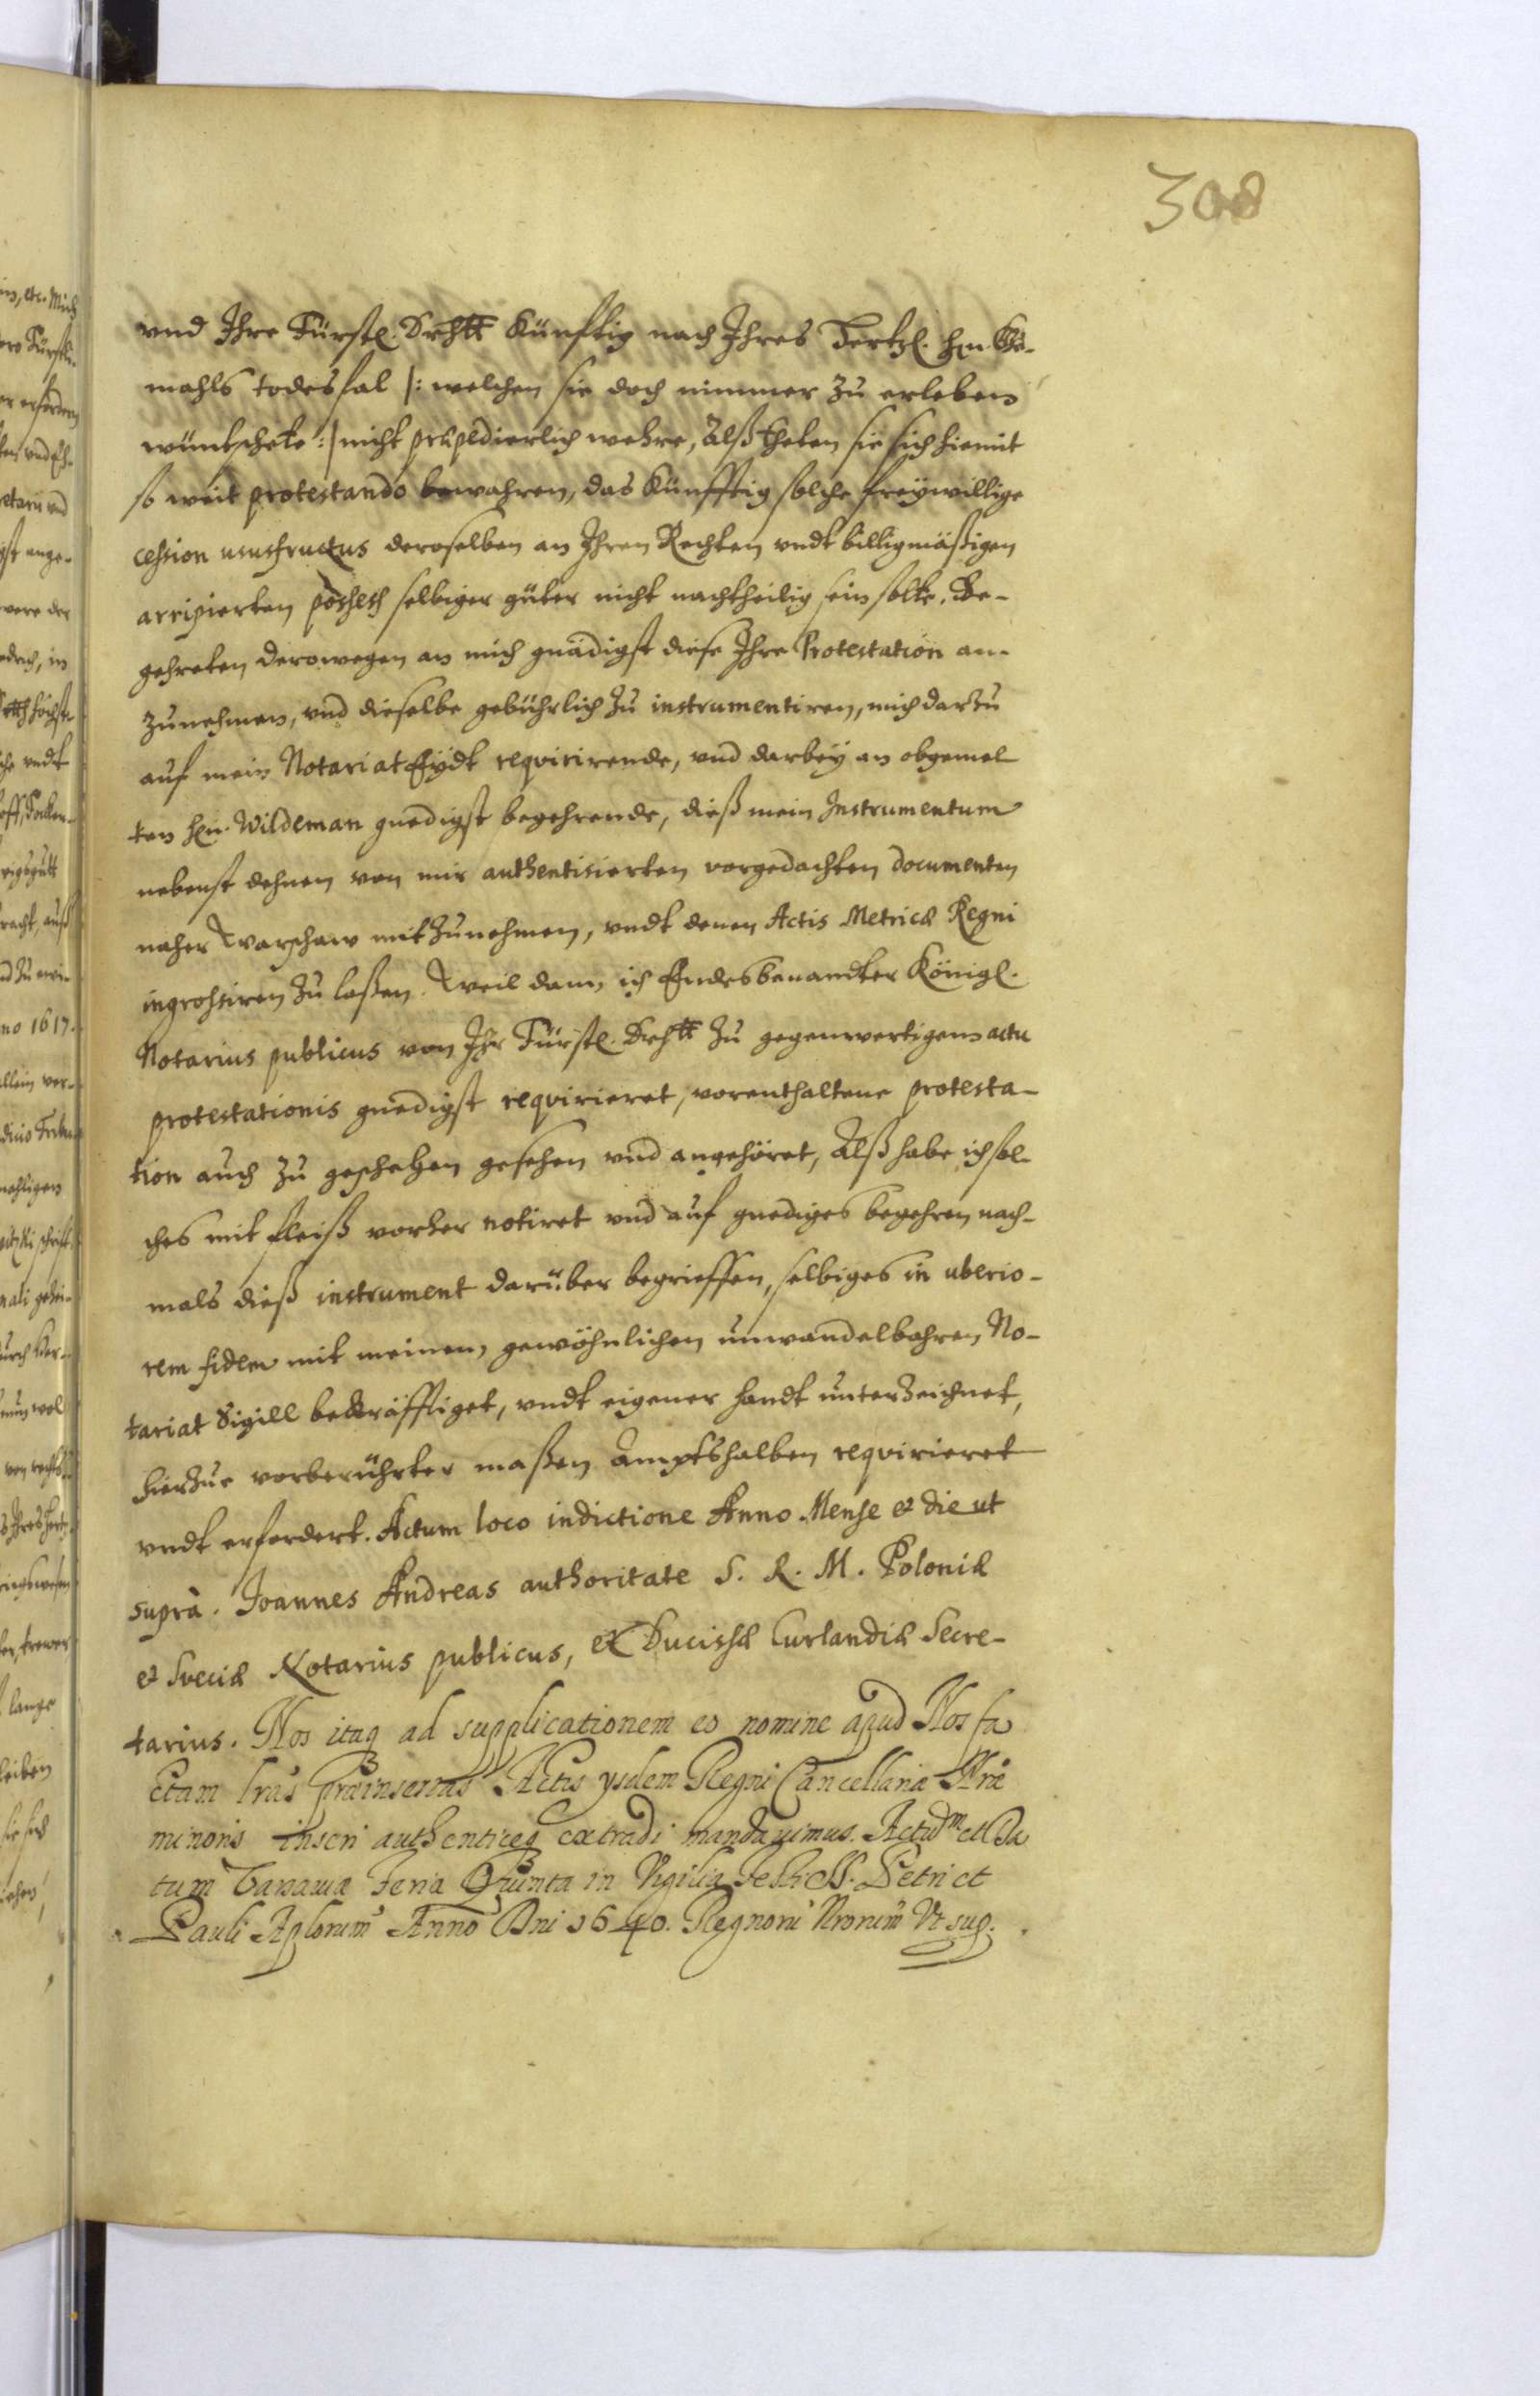 308
vnd Ihre Fürstl. Drchtt Künfftig nach Ihres Hertzl. Hrn. Ge-
mahls todesfal |: welchen sie doch nimmer zu erleben
wüntschete :| nicht præpedierlich wehre, Alß theten sie sich hiemit
so weit protestando bewahren, das künfftig solche freywillige
cession ususfructus deroselben an Ihren Rechten vndt billigmäßigen
arripierten possess selbiger güter nicht nachtheilig sein solte. Be-
gehreten derowegen an mich gnädigst diese Ihre Protestation an-
zunehmen, vnd dieselbe gebührlich zu instrumentiren, mich darzu
auf mein Notariat Eydt requirirende, vnd darbey an obgemel
ten Hrn. Wildeman gnedigst begehrende, dieß mein Instrumentum
nebenst dehnen von mir authentisierten vorgedachten documenten
naher Warschaw mitzunehmen, vndt denen Actis Metricæ Regni
ingrossiren zu laßen. Weil dann ich Endesbenandter Königl.
Notarius publicus von Ihr Fürstl. Drchtt zu gegenwertigem actu
protestationis gnedigst requirieret, vorenthaltene protesta-
tion auch zu geschehen gesehen vnd angehöret, Alß habe ich sol
ches mit fleiß vorher notiret vnd auf gnediges begehren nach-
mals dieß instrument darüber begrieffen, selbiges in uberio-
rem fidem mit meinem gewöhnlichen unwandelbahren No-
tariat Sigill bekräfftiget, vndt eigener handt unterzeichnet,
hierzue vorberührter maßen Amptshalben requirieret
vndt erfordert. Actum loco indictione Anno Mense et die ut
suprà. Joannes Andreas authoritate S. R. M. Poloniæ
et Sveciæ Notarius publicus, et Ducissæ Curlandiæ Secre-
tarius. Nos itaq ad supplicationem eo nomine apud Nos fa
ctam lras præinsertas Actis ysdem Regni Cancellariæ Nræ
minoris inseri authenticeq extradi mandavimus. Actum et Da
tum Varsaviæ Feria Quinta in Vigilia Festi SS. Petri et
Pauli Aplorum Anno Dni 1640. Regnorū Nrorum Vt sup.